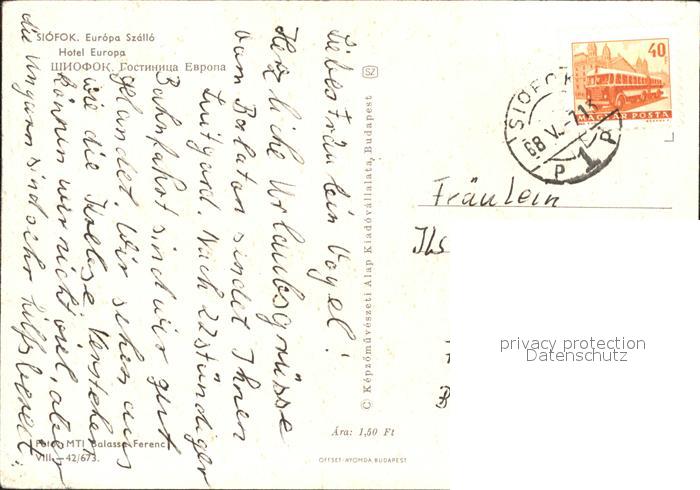 SIÓFOK. Európa Szálló
Hotel Europa
ШИОФОК. Гостиница Европа
Liebes Fräulein Vogel!
Herzliche Urlaubsgrüsse
vom Balaton sendet Ihnen
Luitgard. Nach 22stündiger
Bahnfahrt sind wir gut
gelandet. Wir sehen aus
wie die Krebse. Verstehen
können wir nicht viel, aber
die Ungarn sind sehr hilfsbereit.
Foto: MTI Balassa Ferenc
VIII.—42/673.
SZ
© Képzőművészeti Alap Kiadóvállalata, Budapest
Ára: 1,50 Ft
OFFSET-NYOMDA BUDAPEST
40f
MAGYAR POSTA
SIÓFOK
68 V.
P 1 P
Fräulein
privacy protection
Datenschutz